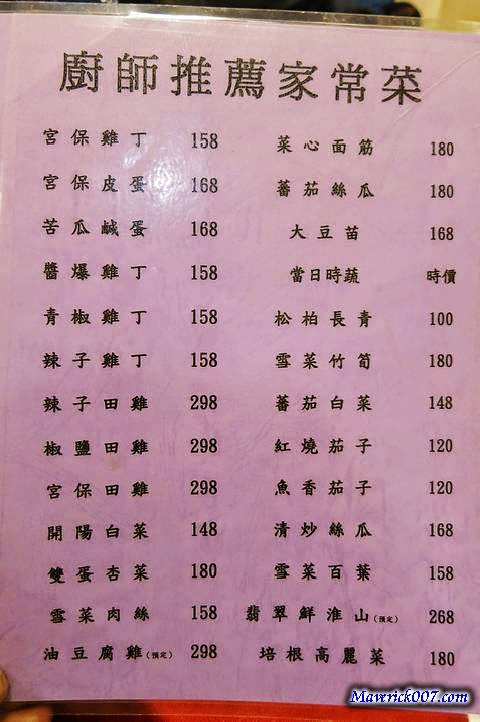 廚師推薦家常菜
宮保雞丁 158
宮保皮蛋 168
苦瓜鹹蛋 168
醬爆雞丁 158
青椒雞丁 158
辣子雞丁 158
辣子田雞 298
椒鹽田雞 298
宮保田雞 298
開陽白菜 148
雙蛋杏菜 180
雪菜肉絲 158
油豆腐雞(預定) 298
菜心面筋 180
蕃茄絲瓜 180
大豆苗 168
當日時蔬 時價
松柏長青 100
雪菜竹筍 180
蕃茄白菜 148
紅燒茄子 120
魚香茄子 120
清炒絲瓜 168
雪菜百葉 158
翡翠鮮淮山(預定) 268
培根高麗菜 180
Maverick007.com